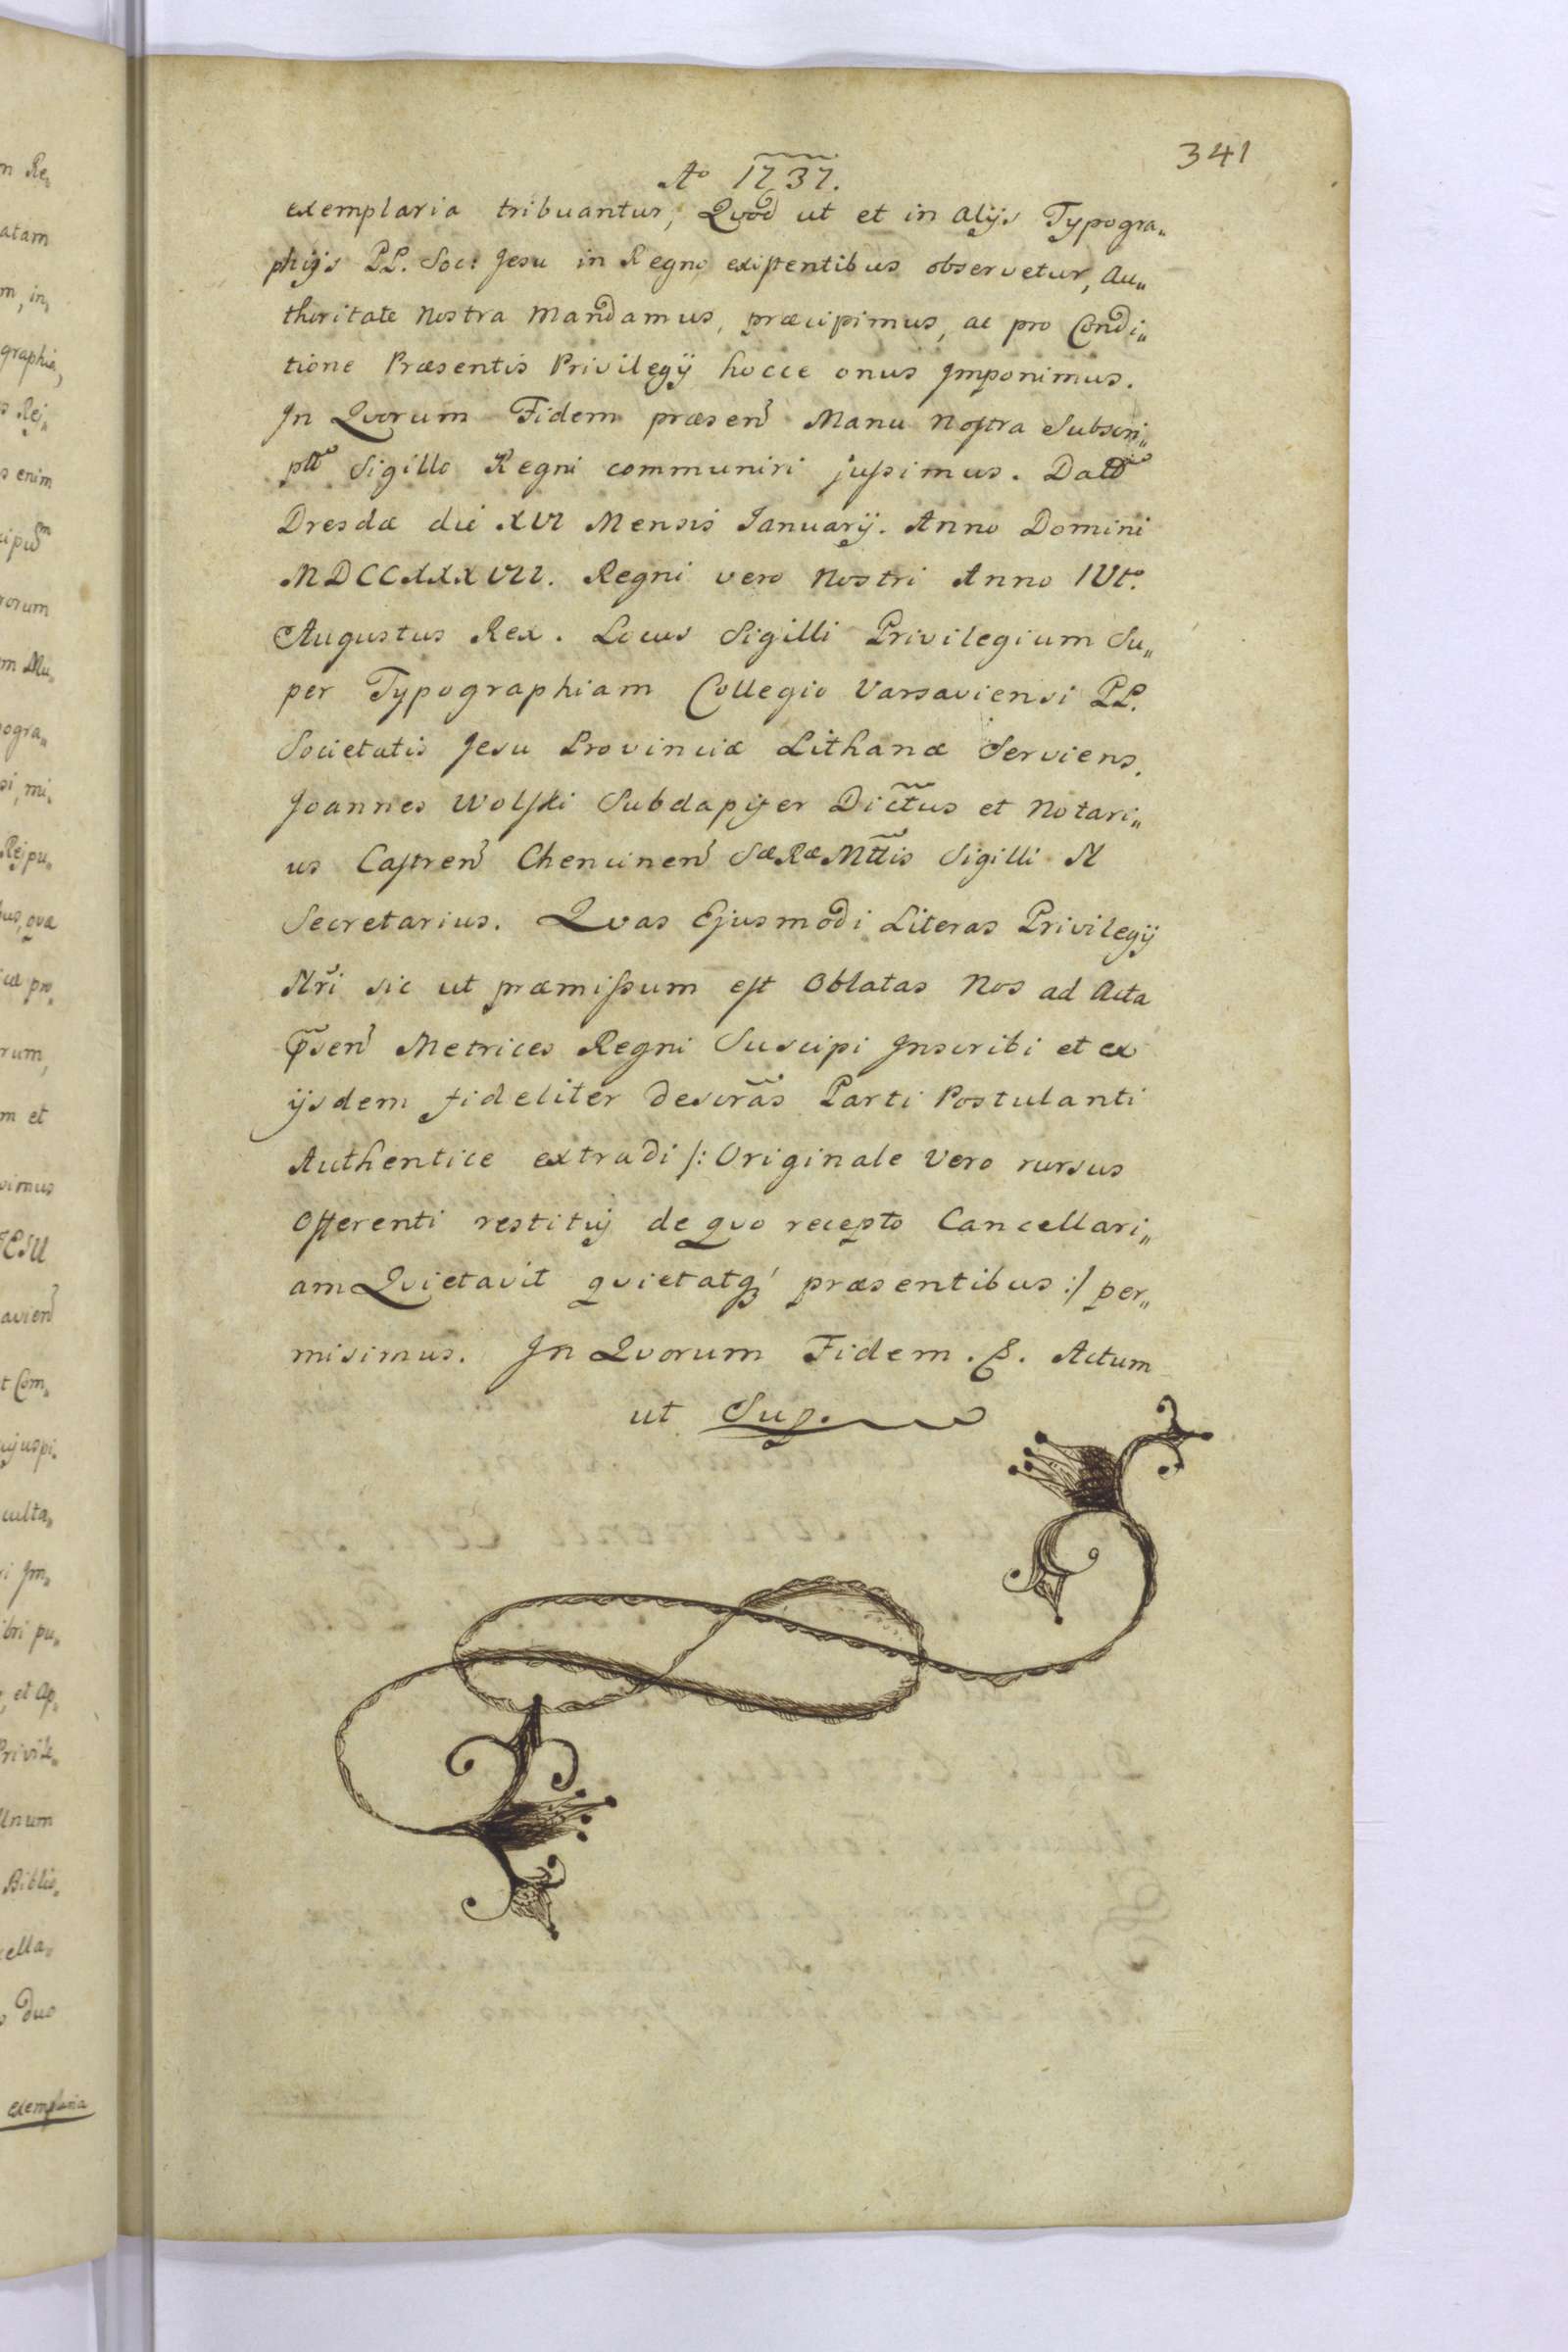 341
Aº 1737.
exemplaria tribuantur, Quod ut et in alijs Typogra„
phijs PP. Soc: Jesu in Regno existentibus observetur, Au„
thoritate Nostra Mandamus, præcipimus, ac pro Condi„
tione Præsentis Privilegij hocce onus Jmponimus.
Jn Quorum Fidem præsen̄ Manu Nostra Subscri„
ptt̃ Sigillo Regni communiri jussimus. Datt̃
Dresdæ die XVI Mensis Januarij. Anno Domini
MDCCXXXVII. Regni vero Nostri Anno IVtº.
Augustus Rex. Locus Sigilli Privilegium Su„
per Typographiam Collegio Varsaviensi PP.
Societatis Jesu Provinciæ Lithanæ Serviens.
Joannes Wolski Subdapifer Dict̃us et Notari„
us Castren̄ Chencinen̄ SæRæMtt̃is Sigilli R
Secretarius. Quas Ejusmodi Literas Privilegij
Nr̃i sic ut præmissum est Oblatas Nos ad Acta
p̃sen̄ Metrices Regni Suscipi Jnscribi et ex
ijsdem fideliter descr̃as Parti Postulanti
Authentice extradi /: Originale Vero rursus
Offerenti restituj de quo recepto Cancellari„
am Quietavit quietatq́ præsentibus :/ per„
misimus. Jn Quorum Fidem. &. Actum
ut Sup.
n Re„
atam
m, in„
graphia,
s Rej„
s enim
orum
m Mu„
pogra„
si, mi„
Reipu„
bus, quæ
cæ pro„
rum,
m et
simus
JESU
avien̄
t Com„
cujuspi„
culta„
i Jm„
ibri pu„
, et Ap„
Privile„
Unum
Biblio„
cella„
s duo
exemplaria